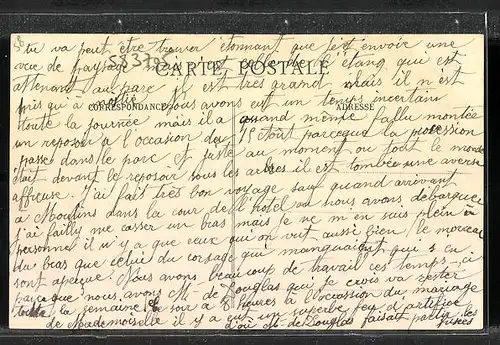 tu va peut être trouver étonnant que je t'envoie une
vue de paysage mais c'est celle de l'étang qui est
583798
CARTE POSTALE
attenant au parc il est très grand mais il n'est
CORRESPONDANCE
ADRESSE
pris qu'à nous avons eut un temps incertain
toute la journée mais il a quand même fallu montée
un reposoir à l'occasion du 15 Août parceque la procession
passe dans le parc et juste au moment ou tout le monde
était devant le reposoir sous les arbres il est tombée une averse
affreuse. J'ai fait très bon voyage sauf quand arrivant
à Moulins dans la cour de l'hôtel ou nous avons débarquée
j'ai failly me casser un bras mais je ne m'en suis plein à
personne il n'y a que ceux qui on vut aussi bien le morceau
du bras que celui du corsage qui manquaient qui s'en
sont aperçue. Nous avons beaucoup de travail ces temps-ci
parceque nous avons Mr de Douglas qui je crois va rester
toute la semaine le soir à heures à l'occasion du mariage
de Mademoiselle il y a eut un superbe feu d'artifice
d'où Mr de Douglas faisait partir les
fusées